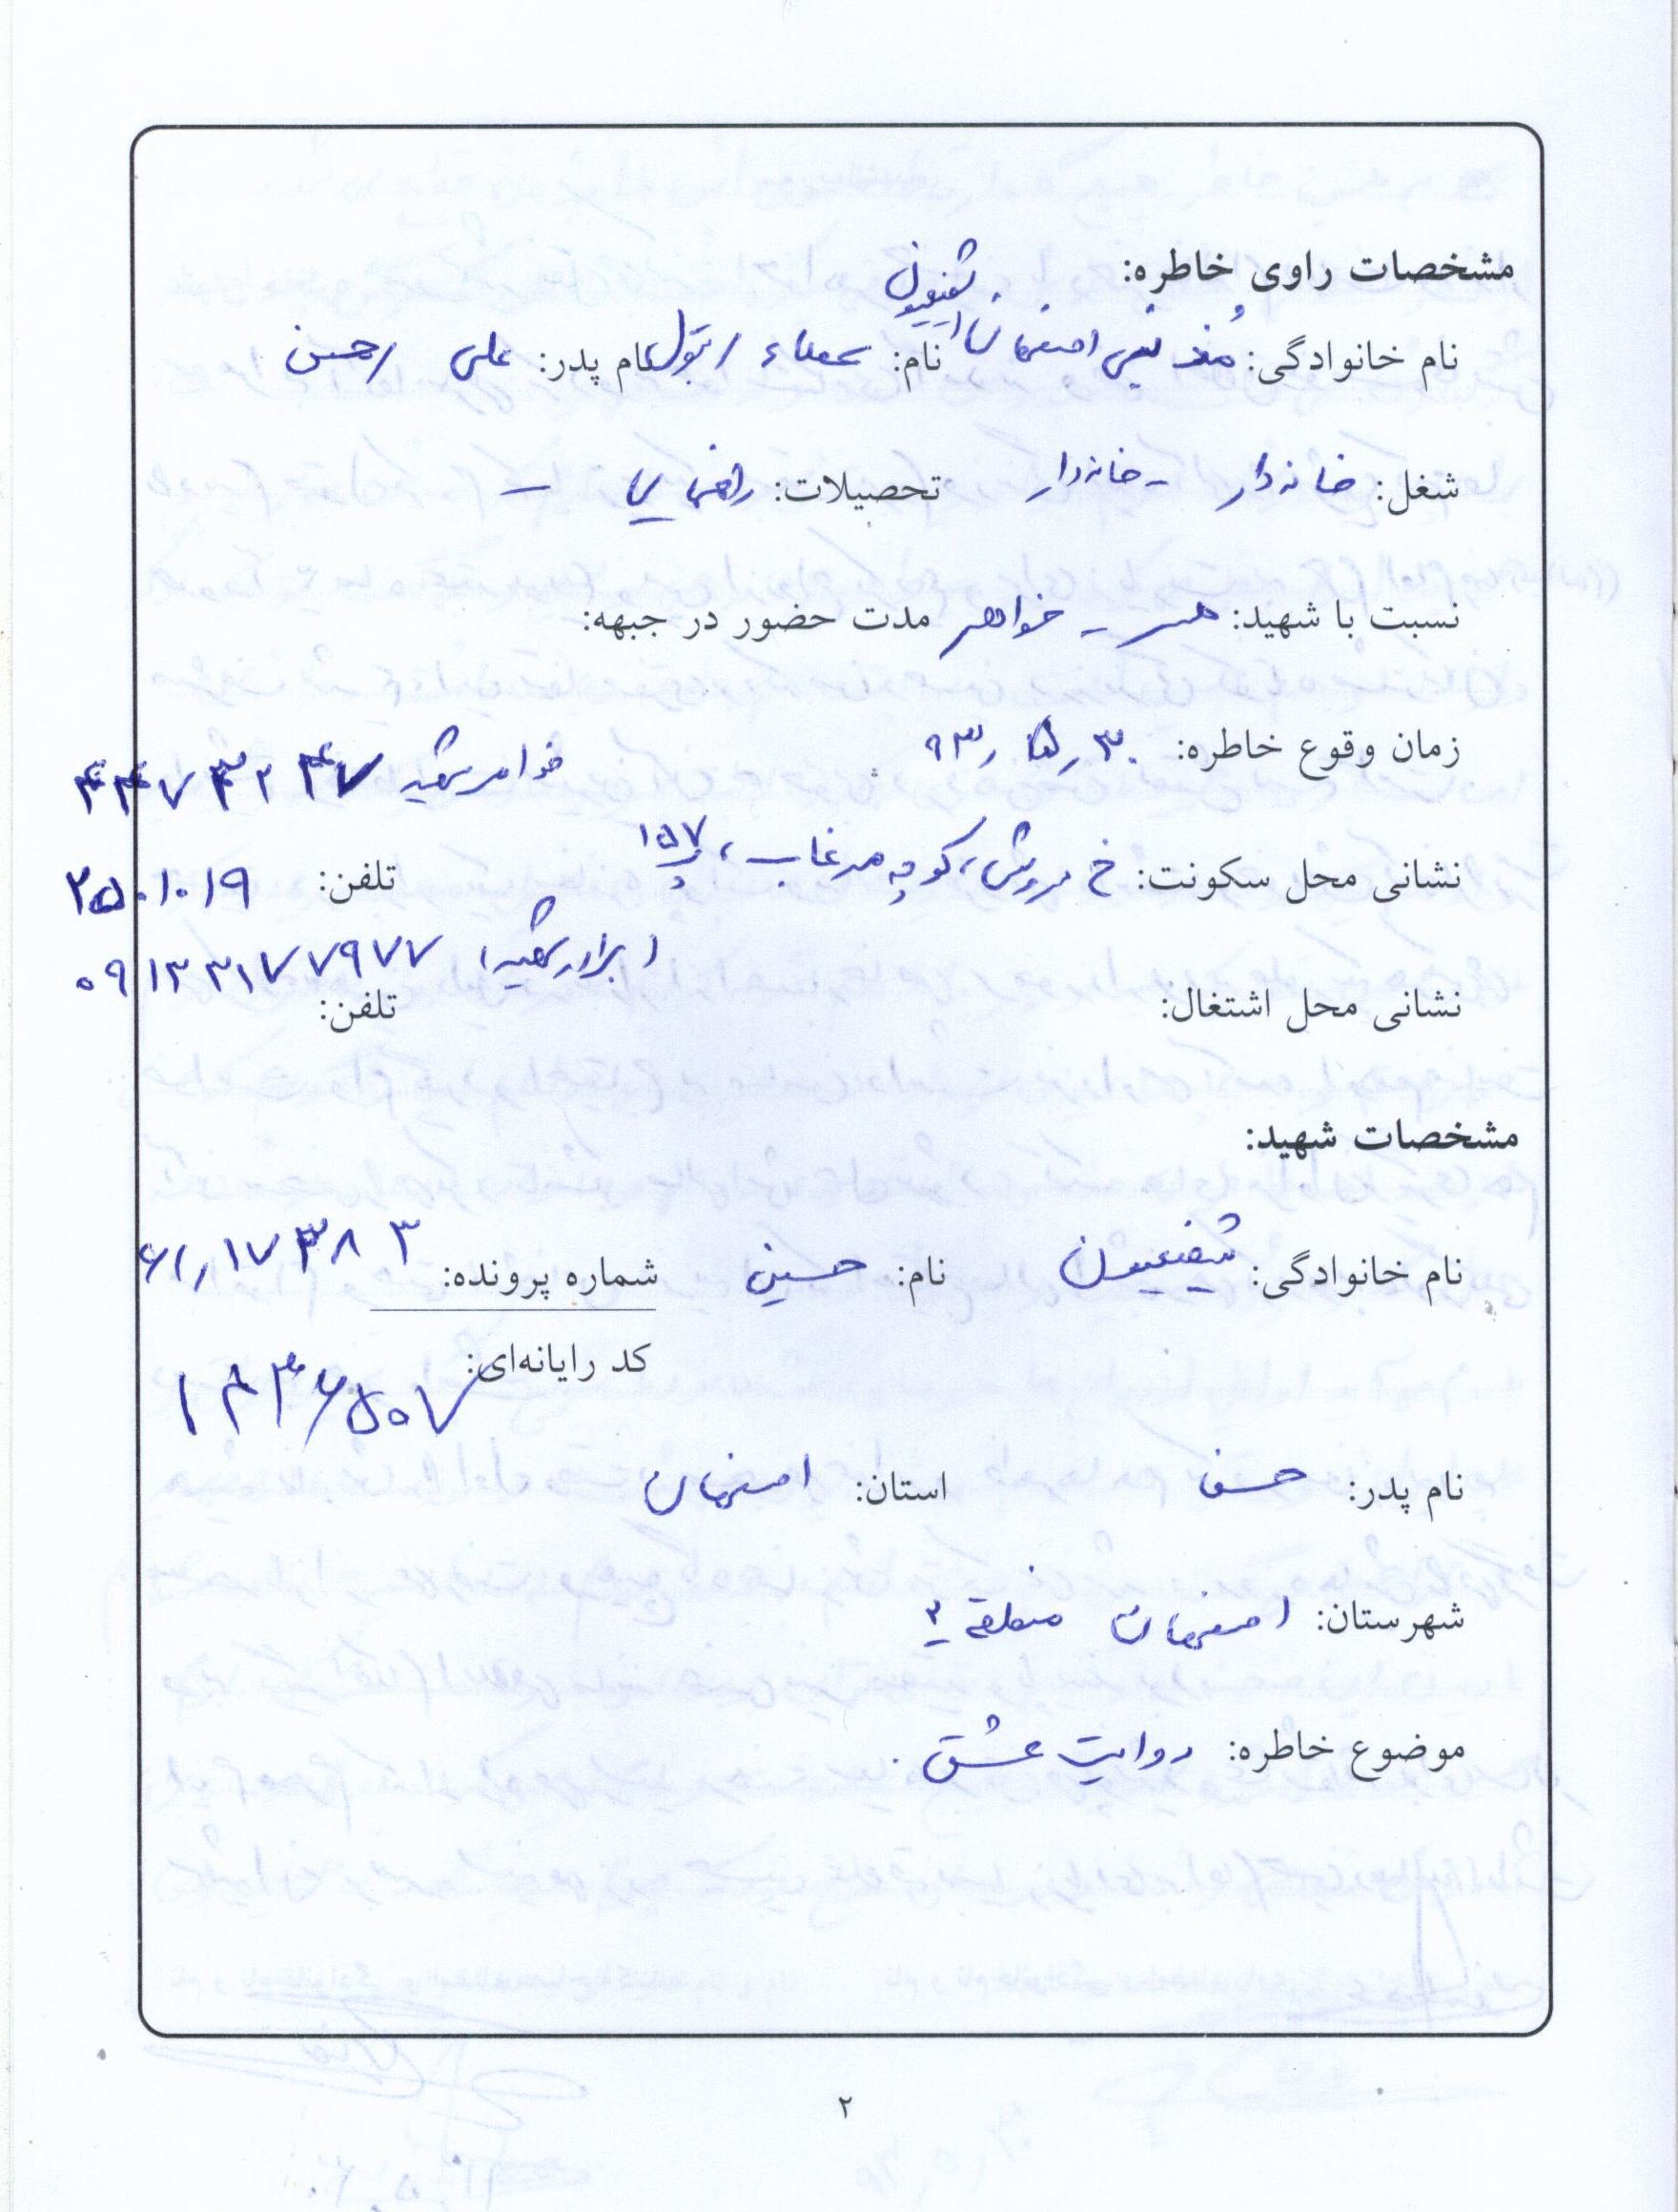 مشخصات راوی خاطره:
شفیعیون
نام خانوادگی: اصفهانی نام: / بتول نام پدر: علی / حسن
شغل: خانه‌دار - خانه‌دار تحصیلات: راهنمایی -
نسبت با شهید: همسر - خواهر مدت حضور در جبهه:
زمان وقوع خاطره: ۹۳/۵/۳۰
خواهر شهید ۳۴۴۷۳۲۴۷
نشانی محل سکونت: خ سروش، کوچه مرغاب، پ ۱۵۷ تلفن: ۲۵۰۱۰۱۹
(برادر شهید) ۰۹۱۳۳۱۷۷۹۷۷
نشانی محل اشتغال: تلفن:
مشخصات شهید:
نام خانوادگی: شفیعیون نام: حسین شماره پرونده: ۶۱/۱۷۳۸۳
کد رایانه‌ای: ۱۸۴۶۵۰۷
نام پدر: حسن استان: اصفهان
شهرستان: اصفهان منطقه ۳
موضوع خاطره: روایت عشق.
۲